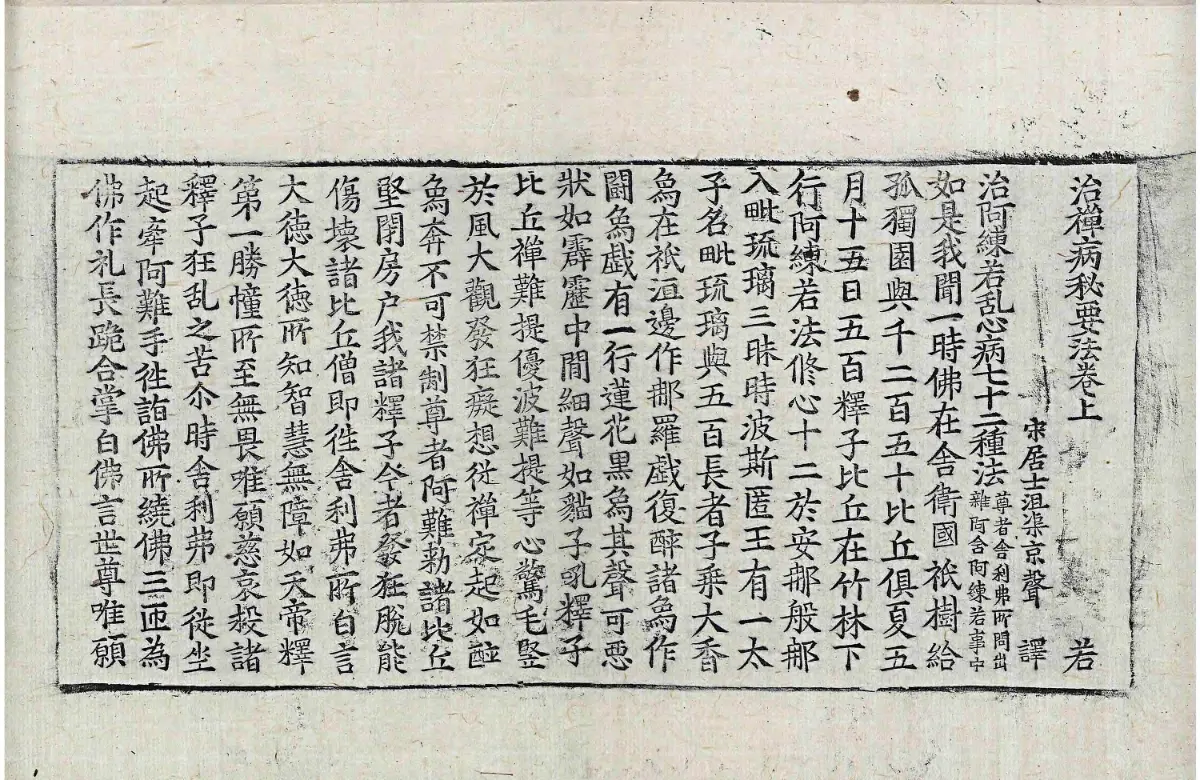 治禪病秘要法卷上 若
宋居士沮渠京聲 譯
治阿練若乱心病七十二種法 尊者舍利弗所問出雜阿含阿練若事中
如是我聞一時佛在舍衛國祇樹給
孤獨園與千二百五十比丘俱夏五
月十五日五百釋子比丘在竹林下
行阿練若法修心十二於安那般那
入毗琉璃三昧時波斯匿王有一太
子名毗琉璃與五百長者子乗大香
象在祇洹邊作那羅戲復醉諸象作
鬪象戲有一行蓮花黑象其聲可惡
狀如霹靂中間細聲如貓子吼釋子
比丘禪難提優波難提等心驚毛竪
於風大觀發狂癡想從禪定起如酔
象奔不可禁制尊者阿難勅諸比丘
堅閉房户我諸釋子今者發狂脫能
傷壞諸比丘僧即徃舍利弗所白言
大徳大徳所知智慧無障如天帝釋
第一勝幢所至無畏唯願慈哀救諸
釋子狂乱之苦尒時舍利弗即從坐
起牽阿難手徃詣佛所繞佛三迊為
佛作礼長跪合掌白佛言世尊唯願